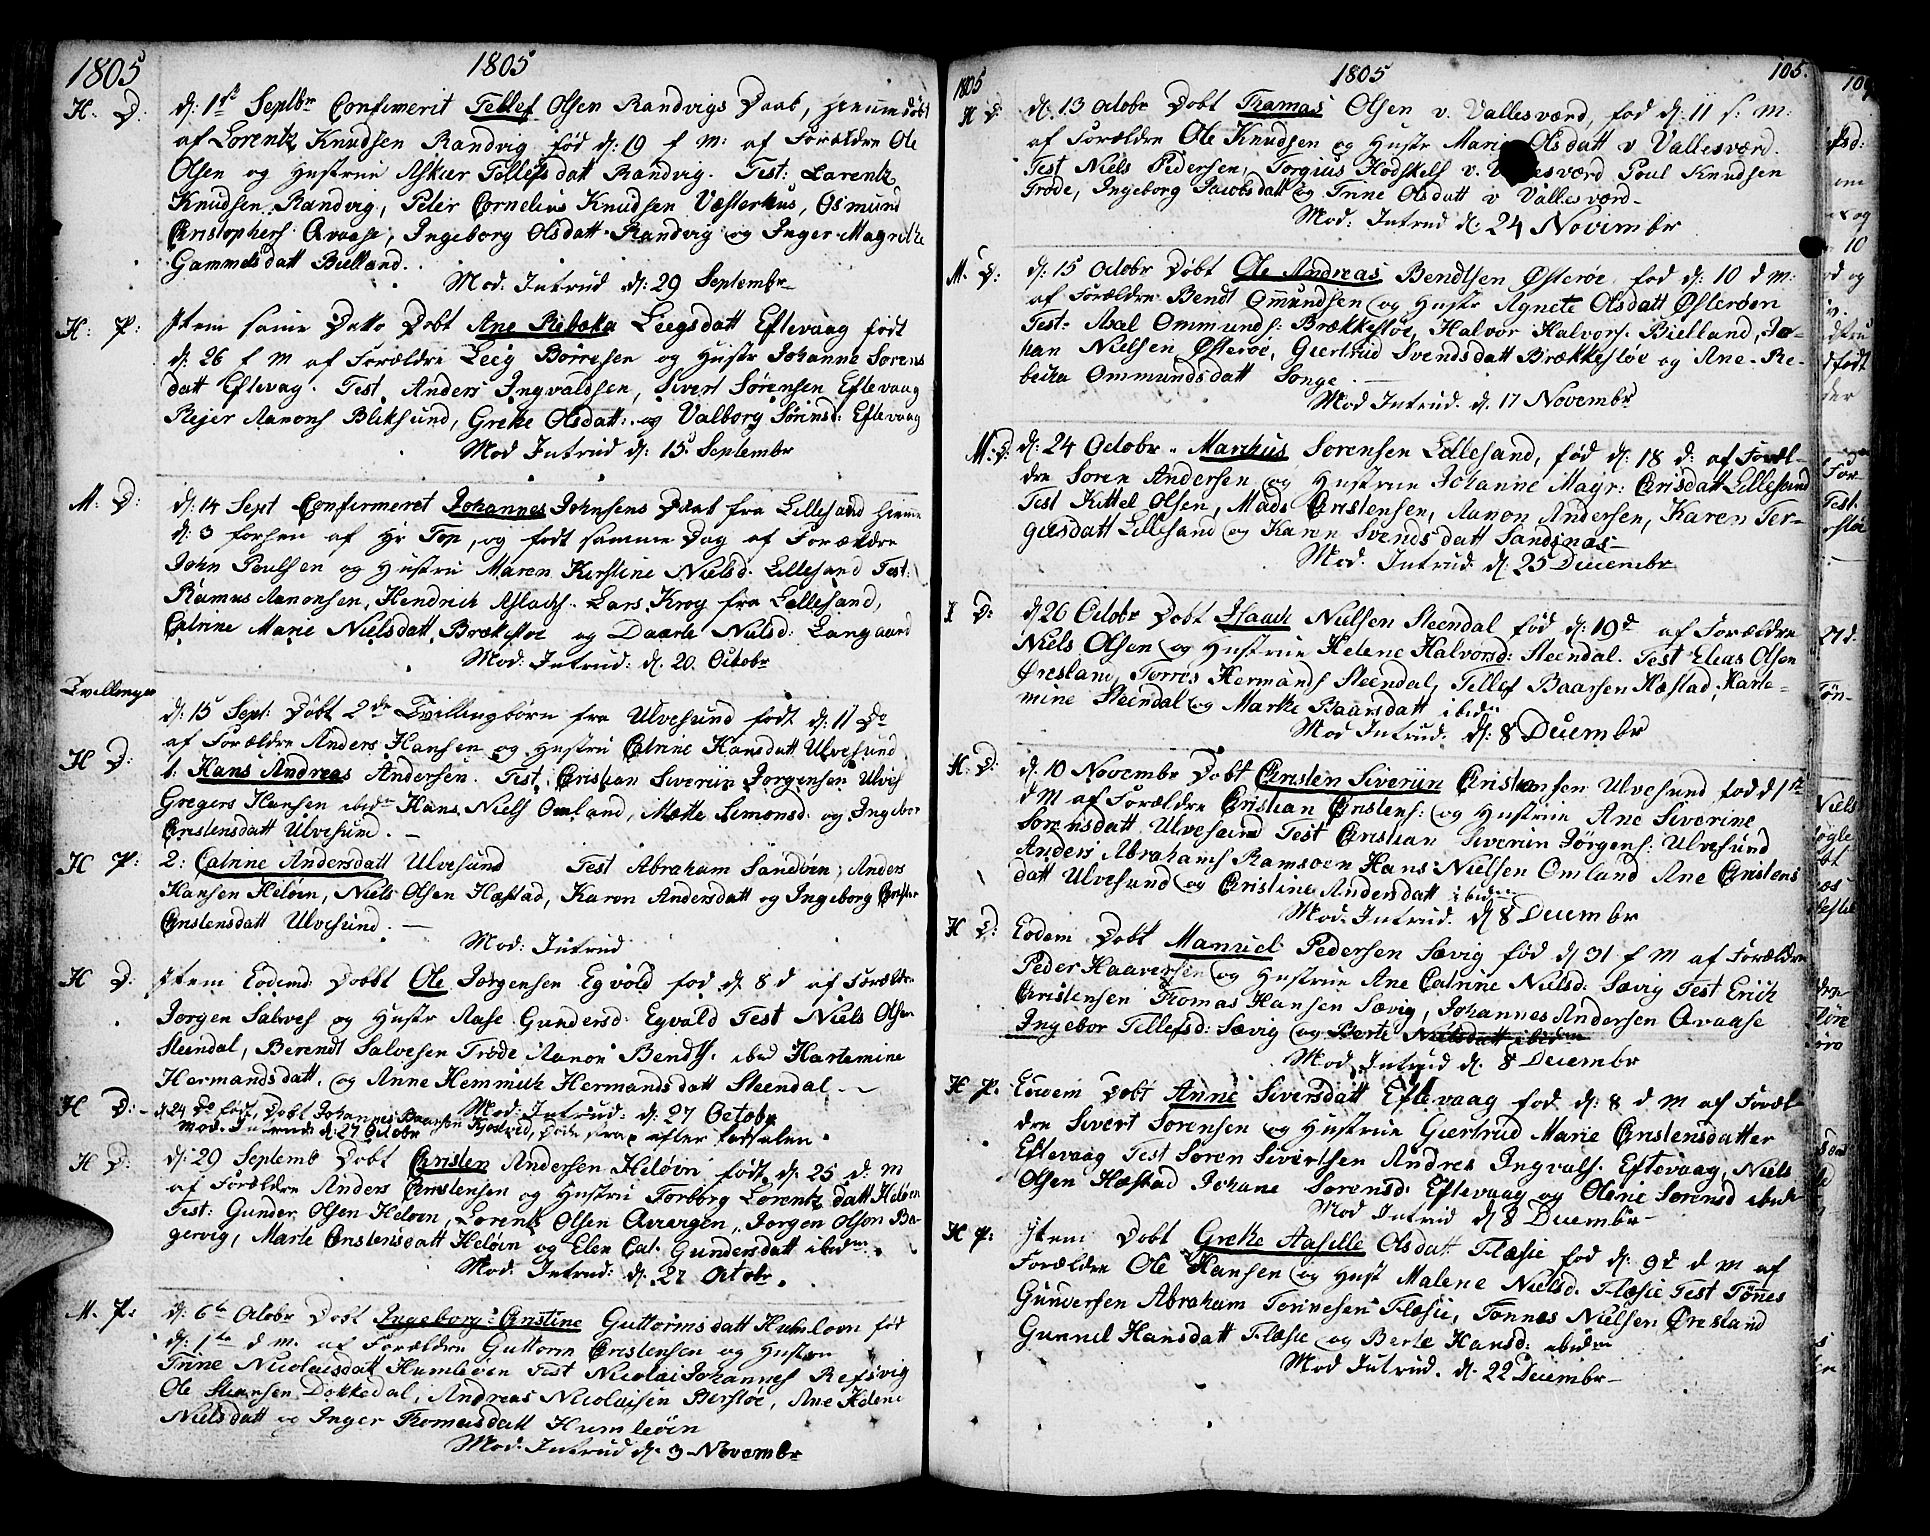 1805
1805
H. D. d: 1ste Septbr Confimerit Tellef Olsen Randvigs Daab, hiemmedøbt
af Lorentz Knudsen Randvig fød d: 19 f M: af Forældre Ole
Olsen og Hustrue Asker Tellefsdatt Randvig. Test: Larentz
Knudsen Randvig, Peter Cornelius Knudsen Væsterhus, Osmund
Cristophers Avaase, Ingeborg Olsdatt Randvig og Inger Magrethe
Gammelsdatt Bielland.
Mod. Introd d: 29 Septembr
H: P: Item samme Datto Døbt Ane Rebeka Leegsdatt Eftevaag født
d: 26 f M af Forældre Leeg Børresen og Hustr Johanne Sørens
datt Eftevaag. Test. Anders Ingvaldsen, Sivert Sørensen Eftevaag
Rejer Aanons Bliksund, Grethe Olsdatt: og Valborg Sørensd: Eftevaag
Mod Introd d: 15 Septembr
M: D: d: 14 Sept Confirmeret Johannes Johnsens Daab fra Lillesand hiemme
d: 3 forhen af Hr Top, og født samme Dag af Forældre
John Poulsen og Hustru Maren Kirstine Nielsd. Lillesand Test:
Rasmus Aanonsen, Hendrich Aslachs. Lars Krog fra Lillesand,
Catrine Marie Nielsdatt Brækkestøe og Daarte Nielsd: Langaard
Mod: Introd: d. 20. Octobr
Tvillinger
d: 15 Sept: Døbt 2de Tvillingbørn fra Ulvesund født d: 11 Do
af Forældre Anders Hansen og Hustru Catrine Hansdatt Ulvesund
H D: 1: Hans Andreas Andersen. Test: Cristian Severiin Jørgensen Ulves
Gregers Hansen ibidm Hans Niels Omland, Mætte Simonsd: og Ingebor
Cristensdatt Ulvesund. —
H P: 2: Catrine Andersdatt Ulvesund Test Abraham Sandøen, Anders
Hansen Heløen, Niels Olsen Hæstad, Karen Andersdatt og Ingeborg
Cristensdatt Ulvesund. —
Mod: Introd
H D: Item Eodem Døbt Ole Jørgensen Egvold fød d: 8 d af Forældre
Jørgen Salves og Hustr Aase Gundersd: Egvald Test Niels Olsen
Steendal, Berendt Salvesen Trøde, Aanon Bendts. ibid Hartemine
Hermandsdatt, og Anne Hemmich Hermandsdatt Steendal —
Mod: Introd: d: 27 Octobr
H D: d 24 Do født, Døbt Johannes Baarsen Fjøsted, døde strax efter fødselen.
Mod. Introd d: 27 Octobr
H D: d: 29 Septemb Døbt Cristen Andersen Heløen født d: 25 d. M
af Forældre Anders Cristensen og Hustru Torborg Lorentzdatt Heløen
Test: Gunder Olsen Heløen, Lorentz Olsen Aavargen, Jørgen Olsen Ba-
gervig, Marte Cristensdatt Heløen og Elen Cat. Gundersdatt ibidm.
Mod: Introd: d: 27 Octobr.
M. P: d: 6te Octobr Døbt Ingeborg Cristine Guttormsdatt Humleøen fød
d: 1ste d M. af Forældre Guttorm Cristensen og Hustru
Trine Nicolaisdatt Humleøen Test Nicolai Johannes Refsvig
Ole Steensen Dokkedal, Andreas Nicolaisen Berstøe, Ane Helene
Nielsdatt og Inger Thomasdatt Humleøen
Mod: Introd d: 3 Novembr
1805
1805
105.
H D: d: 13 Octobr Døbt Thamas Olsen v. Vallesværd, fød d: 11 s: M:
af Forældre Ole Knudsen og Hustr Marie Olsdatt v Vallesværd.
Test Niels Pedersen, Torgius Hodskels v. Vallesværd Poul Knudsen
Trøde, Ingeborg Jacobsdatt og Trine Olsdatt v Vallesværd
Mod: Introd d: 24 Novembr
M. D: d: 15 Octobr Døbt Ole Andreas Bendtsen Østerøe, fød d: 10 d M:
af Forældre Bendt Ommundsen og Hustr Agnete Olsdatt Østerøen
Test: Axel Ommunds: Brækkestøe, Halvor Halvors: Bielland, Jo-
han Nielsen Østerøe, Giertrud Svendsdatt Brækkestøe og Ane Re-
becka Ommundsdatt Songe. —
Mod Introd. d. 17 Novembr
M. D: d: 24 Octobr. Marchus Sørensen Lillesand, fød d: 18 d: af Foræl-
dre Søren Andersen og Hustrue Johanne Magr: Crisdatt Lillesand
Test Kittel Olsen, Mads Cristensen, Aanon Andersen, Karen Ter-
giusdatt Lillesand og Karen Svendsdatt Sandsnæs
Mod. Introd. d: 25 Decembr
I D: d: 20 Octobr Døbt Isaach Nielsen Steendal fød d: 19d af Forældre
Niels Olsen og Hustrue Helene Halvorsd: Steendal. Test Elias Olsen
Øresland, Torres Hermands Steendal, Tellef Baarsen Hæstad, Harte-
mine Steendal og Marthe Baarsdatt ibidm
Mod Introd. d: 8 Decembr
H: D: d: 10 Novembr Døbt Cristen Siveriin Cristiansen Ulvesund fød d 1ste
d M af Forældre Cristian Cristens: og Hustrue Ane Siverine
Sørensdatt Ulvesund Test Cristian Siveriin Jørgens: Ulvesund
Anders Abrahams Ramsøen Hans Nielsen Omland Ane Cristens
datt Ulvesund og Cristine Andersdatt ibidm
Mod. Introd. d 8 Decembr
H D: Eodem Døbt Manuel Pedersen Sævig fød d 31 f M af Forældre
Peder Haaversen og Hustrue Ane Catrine Nielsd. Sævig Test Erich
Cristensen Thomas Hansen Sævig, Johannes Andersen Avaase
Ingebor Tellefsd: Sævig og Berte Nielsdatt ibidem
Mod Introd d. 8 Decembr
H P: Eodem Døbt Anne Siversdatt Eftevaag fød d: 8 d M af Foræl-
dre Sivert Sørensen og Hustrue Giertrud Marie Cristensdatter
Eftevaag Test Søren Sivertsen Andres Ingvals. Eftevaag, Niels
Olsen Hæstad Johane Sørensd. Eftevaag og Olene Sørensd ibid
Mod Introd d 8 Decembr
H P: Item Døbt Grethe Aasille Olsdatt Flæsie fød d: 9d d M af
Forældre Ole Hansen og Hust Malene Nielsd. Flæsie Test Tønes
Gundersen Abraham Tønnesen Flæsie, Tønnes Nielsen Øresland
Gunnil Hansdatt Flæsie og Berte Hansd: ibidm
Mod Introd. d. 22 Decembr